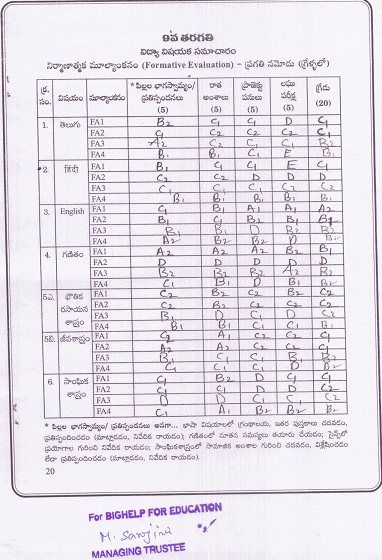 9వ తరగతి
విద్యా విషయక సమాచారం
నిర్మాణాత్మక మూల్యాంకనం (Formative Evaluation) – ప్రగతి నమోదు (గ్రేళ్ళలో)
క్ర. సం. విషయం మూల్యాంకనం * పిల్లల భాగస్వామ్యం/ ప్రతిస్పందనలు (5) రాత అంశాలు (5) ప్రాజెక్టు పనులు (5) లఘు పరీక్ష (5) గ్రేడు (20)
1. తెలుగు FA1 B2 C1 C1 D C1
FA2 C1 C2 C2 C2 C1
FA3 A2 C1 C1 C1 B2
FA4 B1 B1 C1 E B1
2. हिंदी FA1 B1 C1 C1 E C1
FA2 C2 C2 D D D
FA3 C1 C1 C1 C2 C2
FA4 B1 B1 B1 B1 B1
3. English FA1 C1 B1 A1 A1 A2
FA2 B1 C1 B2 B1 B2
FA3 B1 B1 D B2 B2
FA4 A2 B2 B2 D B2
4. గణితం FA1 A2 A2 A2 B2 B1
FA2 D D D D D
FA3 B2 B2 B2 A2 B2
FA4 C1 B1 D B1 B1
5ఎ. భౌతిక రసాయన శాస్త్రం FA1 C2 B2 C2 B2 C2
FA2 B2 C2 C2 C2 C2
FA3 B1 D C1 D C2
FA4 B1 B1 C1 C1 B1
5బి. జీవశాస్త్రం FA1 C2 A1 C2 C1
FA2 A2 A2 C2 C1 C1
FA3 B1 C1 C1 B1 B2
FA4 C1 C1 C1 D B2
6. సాంఘిక శాస్త్రం FA1 C1 B2 D C1 C1
FA2 C1 C1 D D C2
FA3 D D C1 C1 C2
FA4 C1 A1 B2 B2 B2
* పిల్లల భాగస్వామ్యం/ ప్రతిస్పందనలు అనగా... భాషా విషయాలలో గ్రంథాలయ, ఇతర పుస్తకాలు చదవడం,
ప్రతిస్పందించడం (మాట్లాడడం, నివేదిక రాయడం); గణితంలో నూతన సమస్యలు తయారు చేయడం; సైన్స్‌లో
ప్రయోగాల గురించి నివేదిక రాయడం; సాంఘికశాస్త్రంలో సామాజిక అంశాల గురించి చదవడం, విశ్లేషించడం
లేదా ప్రతిస్పందించడం (మాట్లాడడం, నివేదిక రాయడం).
20
For BIGHELP FOR EDUCATION
M. Sarojini
MANAGING TRUSTEE